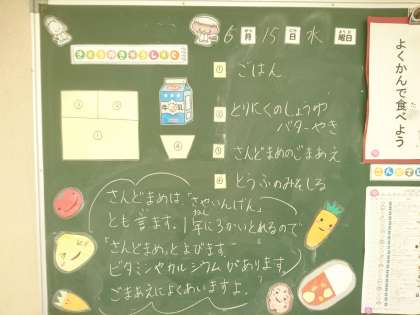 6月15日 水曜日
きょうのきゅうしょく
① ごはん
② とりにくのしょうゆ
バターやき
③ さんどまめのごまあえ
④ とうふのみそしる
③
②
①
④
牛乳
さんどまめは「さやいんげん」
とも言ます。1年に3かいとれるので
ねん
「さんどまめ」とよびます
ビタミンやカルシウムがあります。
ごまあえによくあいますよ。
よくかんで食べよう